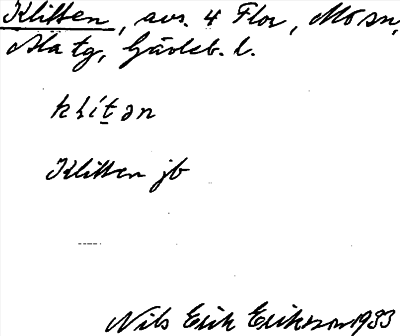 Klitten, avs. 4 Flor, Mo sn,
Ala tg, Gävleb. l.
klítən
Klitten jb
Nils Erik Eriksson 1933